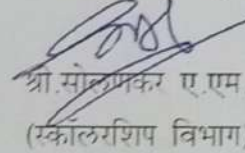 श्री.सोलणकर ए.एम
(स्कॉलरशिप विभाग)